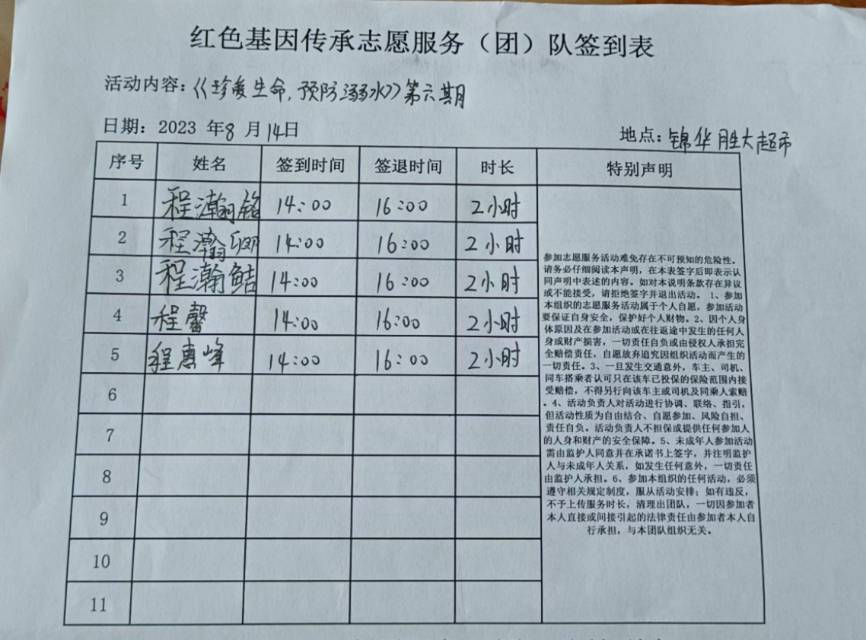 红色基因传承志愿服务（团）队签到表
活动内容：《珍爱生命,预防溺水》第六期
日期：2023 年8 月14日
地点：锦华胜大超市
序号 姓名 签到时间 签退时间 时长 特别声明
1 程瀚铭 14:00 16:00 2小时
2 程瀚卿 14:00 16:00 2小时
3 程瀚鲒 14:00 16:00 2小时
4 程馨 14:00 16:00 2小时
5 程惠峰 14:00 16:00 2小时
6
7
8
9
10
11
参加志愿服务活动难免存在不可预知的危险性。
请务必仔细阅读本声明，在本表签字后即表示认
同声明中表述的内容。如对本说明条款存在异议
或不能接受，请拒绝签字并退出活动。 1、参加
本组织的志愿服务活动属于个人自愿，参加活动
要保证自身安全，保护好个人财物。2、因个人身
体原因及在参加活动或在往返途中发生的任何人
身或财产损害，一切责任自负或由侵权人承担完
全赔偿责任，自愿放弃追究因组织活动而产生的
一切责任。3、一旦发生交通意外，车主、司机、
同车搭乘者认可只在该车已投保的保险范围内接
受赔偿，不得另行向该车主或司机及同乘人索赔
。4、活动负责人对活动进行协调、联络、指引，
但活动性质为自由结合、自愿参加、风险自担、
责任自负。活动负责人不担保或提供任何参加人
的人身和财产的安全保障。5、未成年人参加活动
需由监护人同意并在承诺书上签字，并注明监护
人与未成年人关系，如发生任何意外，一切责任
由监护人承担。6、参加本组织的任何活动，必须
遵守相关规定制度，服从活动安排；如有违反，
不予上传服务时长，清理出团队，一切因参加者
本人直接或间接引起的法律责任由参加者本人自
行承担，与本团队组织无关。